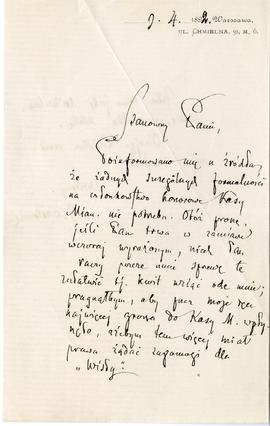 9. 4. 1882. Warszawa,
UL. CHMIELNA, 9, M. 6.
Szanowny Panie,
Poinformowano mię u źródła,
że żadnych szczególnych formalności
na członkowstwo honorowe Kasy
Mian. nie potrzeba. Otóż proszę,
jeśli Pan trwa w zamiarze
wczoraj wyrażonym, niech Pan
raczy przeze mnie sprawę tę
załatwić tj. kwit wziąć ode mnie;
pragnąłbym, aby przez moje ręce
najwięcej grosza do Kasy M. wpły-
nęło, ażebym tem więcej miał
prawa żądać zapomogi dla
„Wisły".